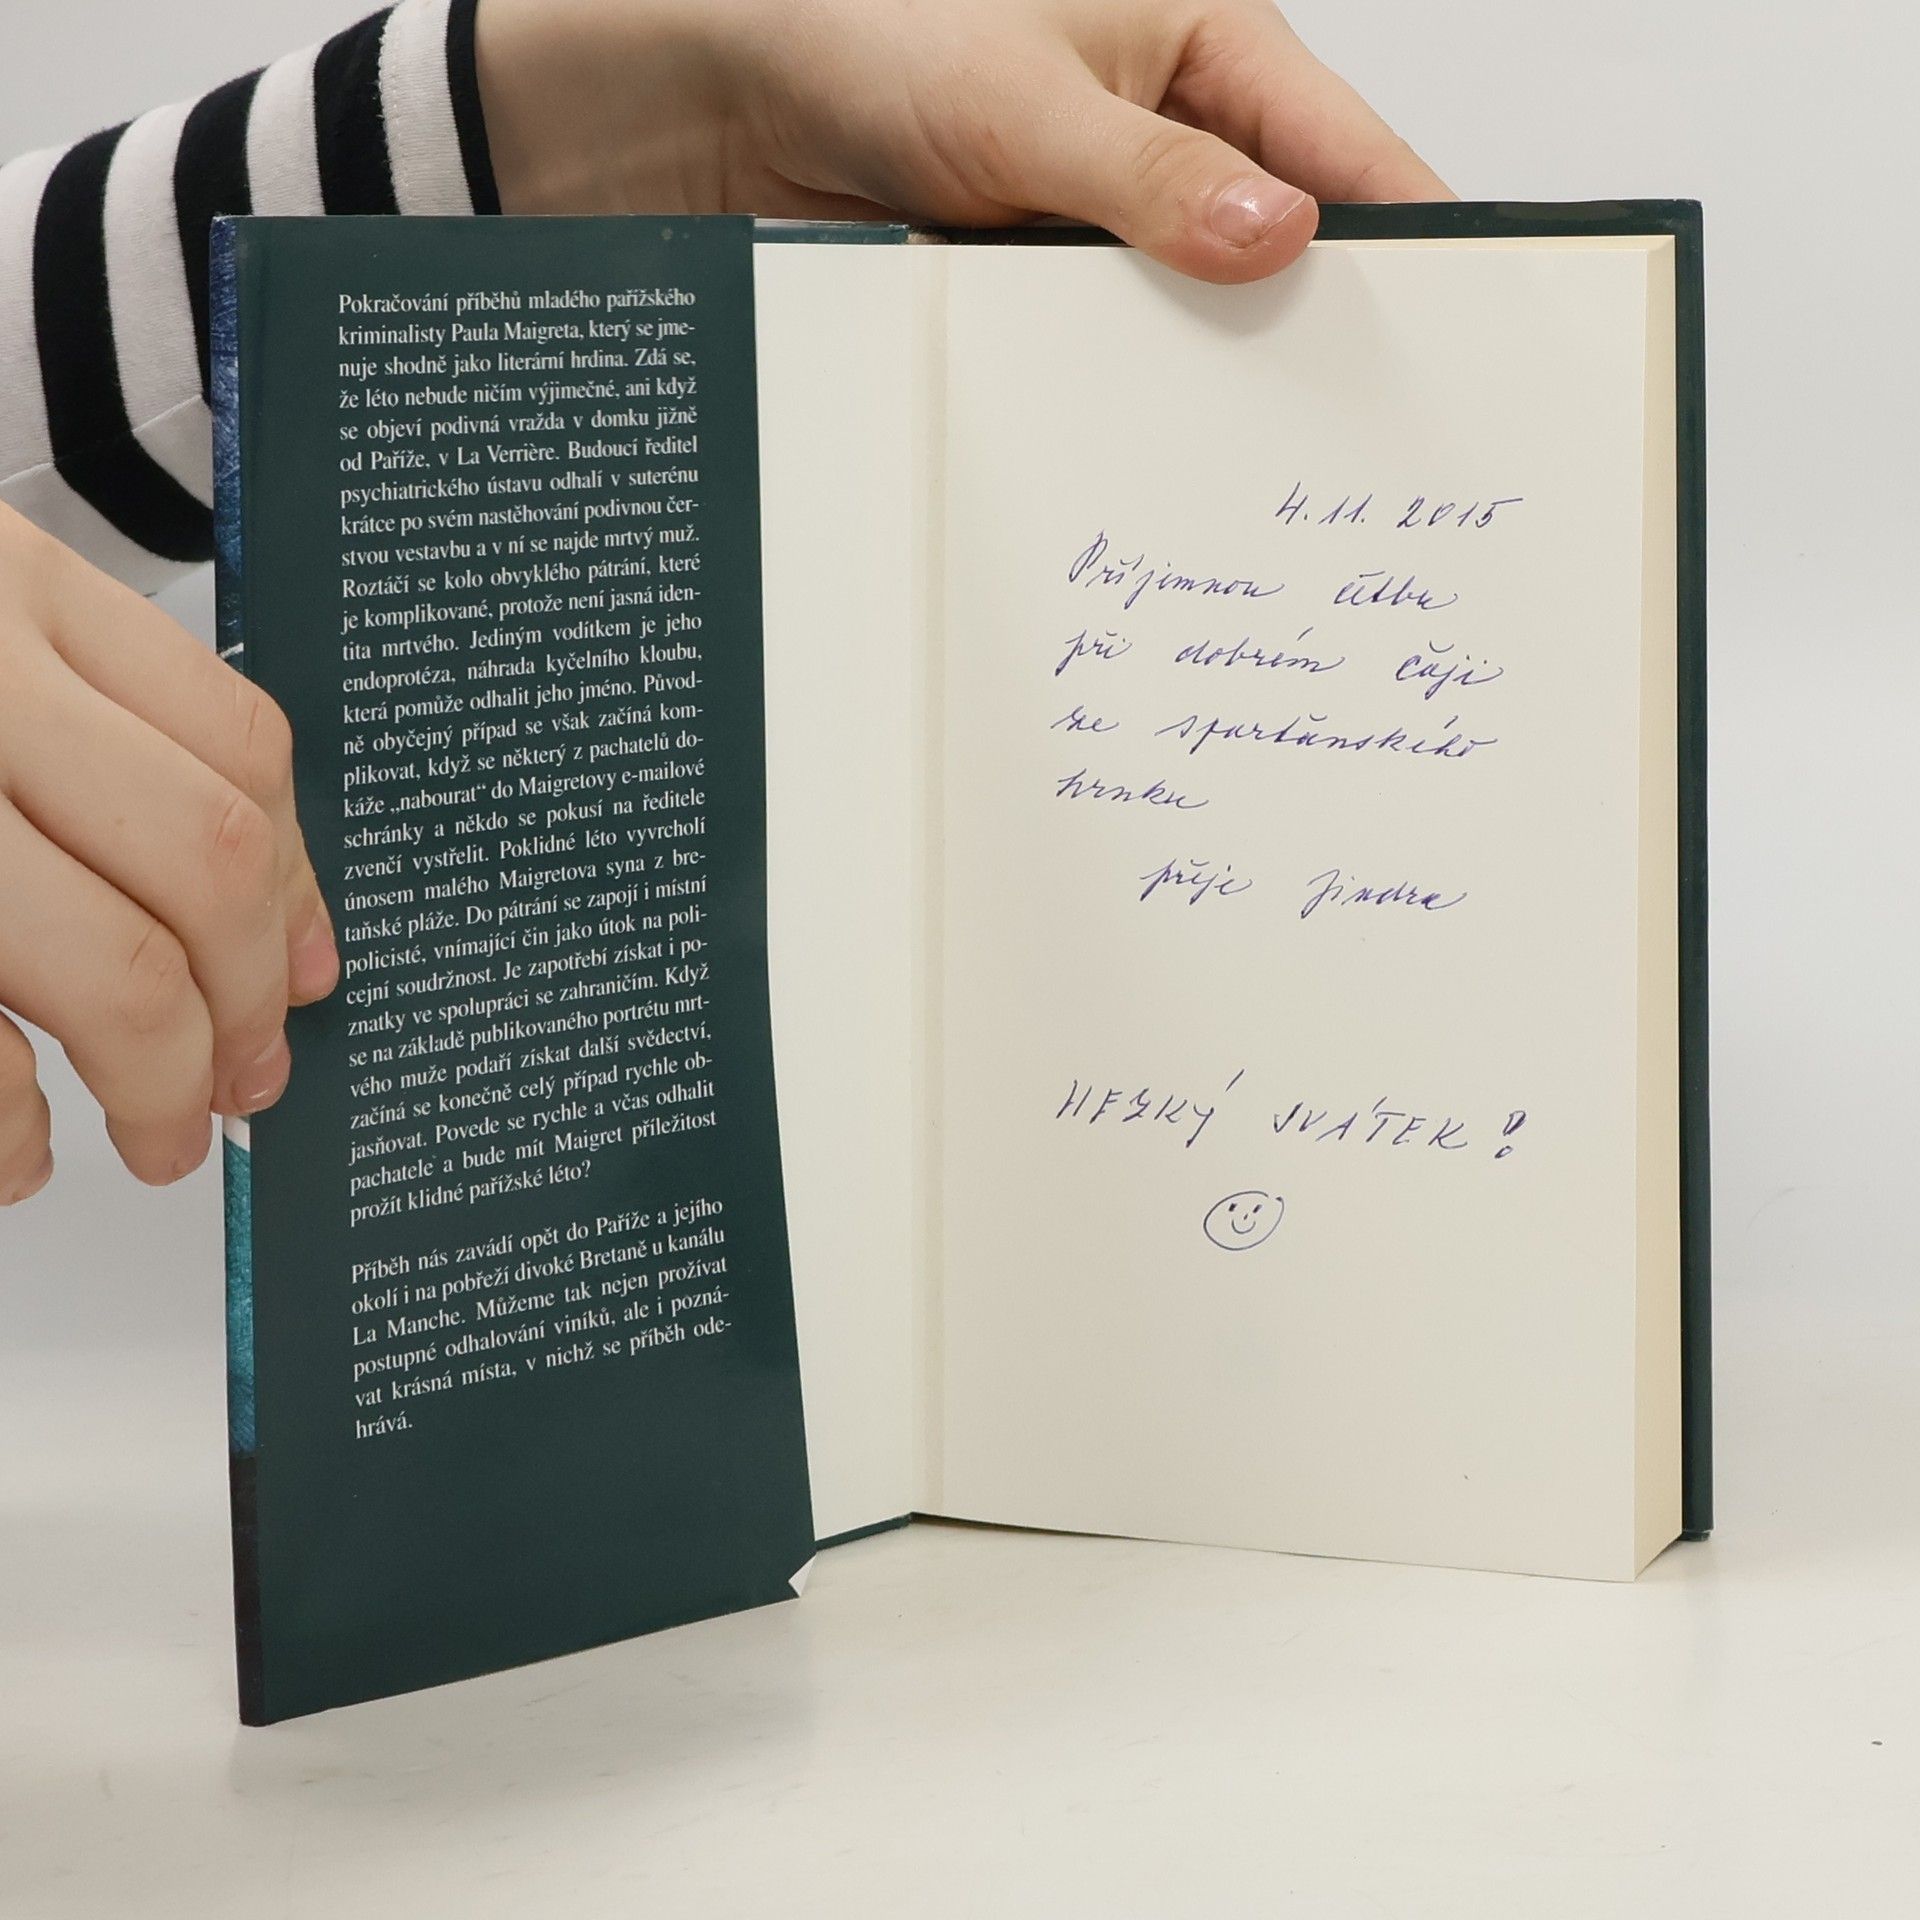 Pokračování příběhů mladého pařížského
kriminalisty Paula Maigreta, který se jme-
nuje shodně jako literární hrdina. Zdá se,
že léto nebude ničím výjimečné, ani když
se objeví podivná vražda v domku jižně
od Paříže, v La Verrière. Budoucí ředitel
psychiatrického ústavu odhalí v suterénu
krátce po svém nastěhování podivnou čer-
stvou vestavbu a v ní se najde mrtvý muž.
Roztáčí se kolo obvyklého pátrání, které
je komplikované, protože není jasná iden-
tita mrtvého. Jediným vodítkem je jeho
endoprotéza, náhrada kyčelního kloubu,
která pomůže odhalit jeho jméno. Původ-
ně obyčejný případ se však začíná kom-
plikovat, když se některý z pachatelů do-
káže „nabourat“ do Maigretovy e-mailové
schránky a někdo se pokusí na ředitele
zvenčí vystřelit. Poklidné léto vyvrcholí
únosem malého Maigretova syna z bre-
taňské pláže. Do pátrání se zapojí i místní
policisté, vnímající čin jako útok na poli-
cejní soudržnost. Je zapotřebí získat i po-
znatky ve spolupráci se zahraničím. Když
se na základě publikovaného portrétu mrt-
vého muže podaří získat další svědectví,
začíná se konečně celý případ rychle ob-
jasňovat. Povede se rychle a včas odhalit
pachatele a bude mít Maigret příležitost
prožít klidné pařížské léto?
Příběh nás zavádí opět do Paříže a jejího
okolí i na pobřeží divoké Bretaně u kanálu
La Manche. Můžeme tak nejen prožívat
postupné odhalování viníků, ale i pozná-
vat krásná místa, v nichž se příběh ode-
hrává.
4.11. 2015
Příjemnou četbu
při dobrém čaji
ze sparťanského
hrnku
přeje Jindra
HEZKÝ SVÁTEK!